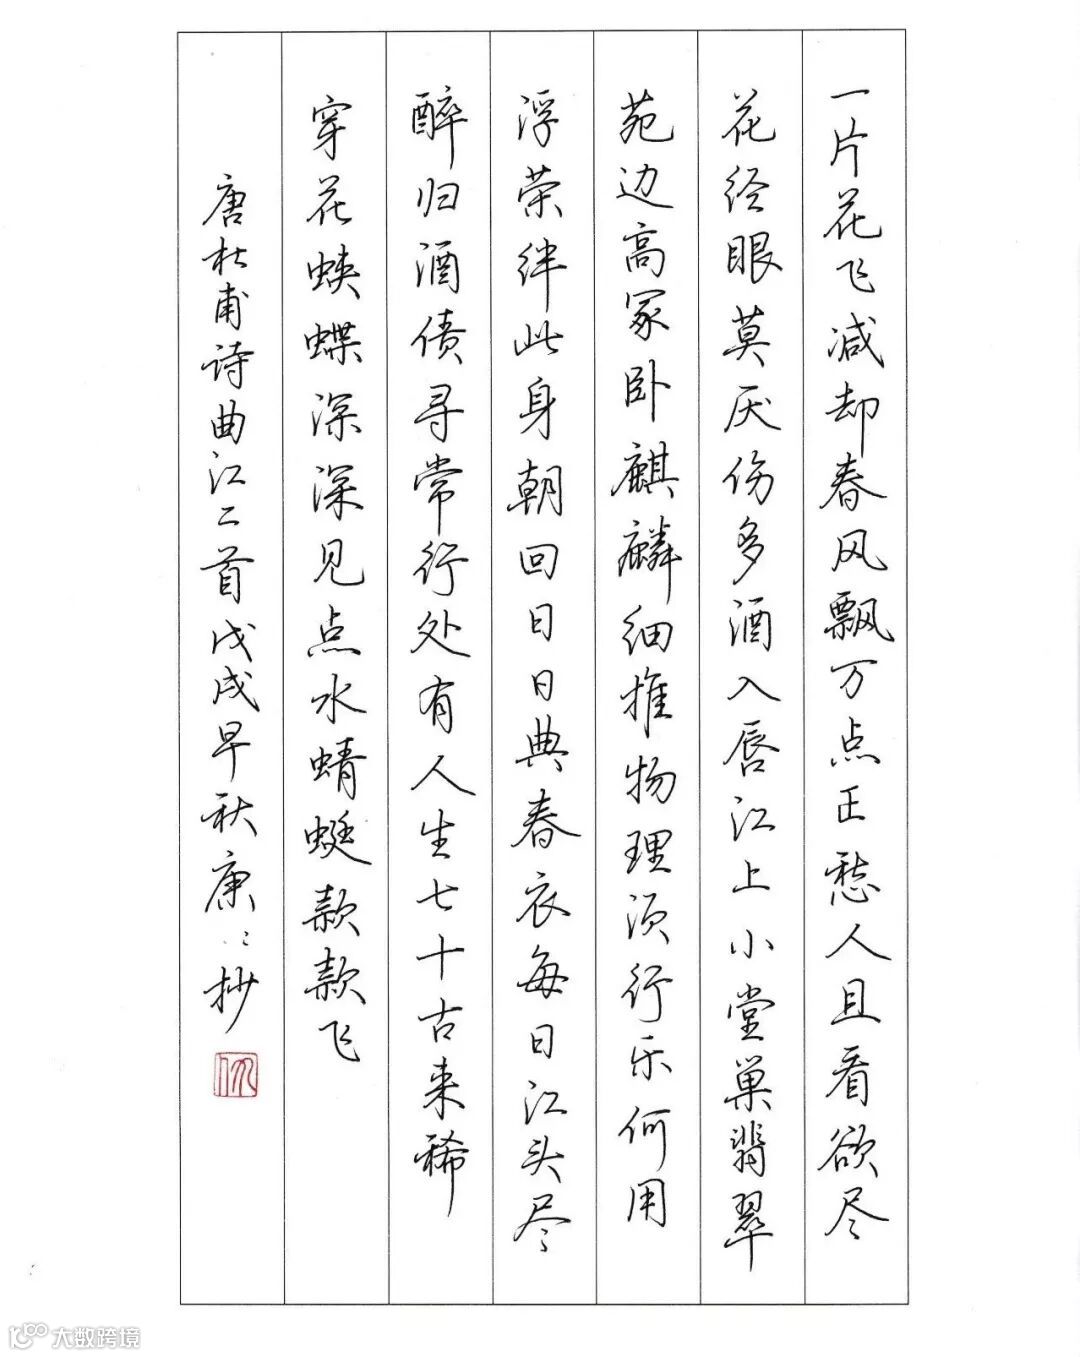 一片花飞减却春风飘万点正愁人且看欲尽
花经眼莫厌伤多酒入唇江上小堂巢翡翠
苑边高冢卧麒麟细推物理须行乐何用
浮荣绊此身朝回日日典春衣每日江头尽
醉归酒债寻常行处有人生七十古来稀
穿花蛱蝶深深见点水蜻蜓款款飞
唐杜甫诗曲江二首戊戌早秋庚抄
大数跨境